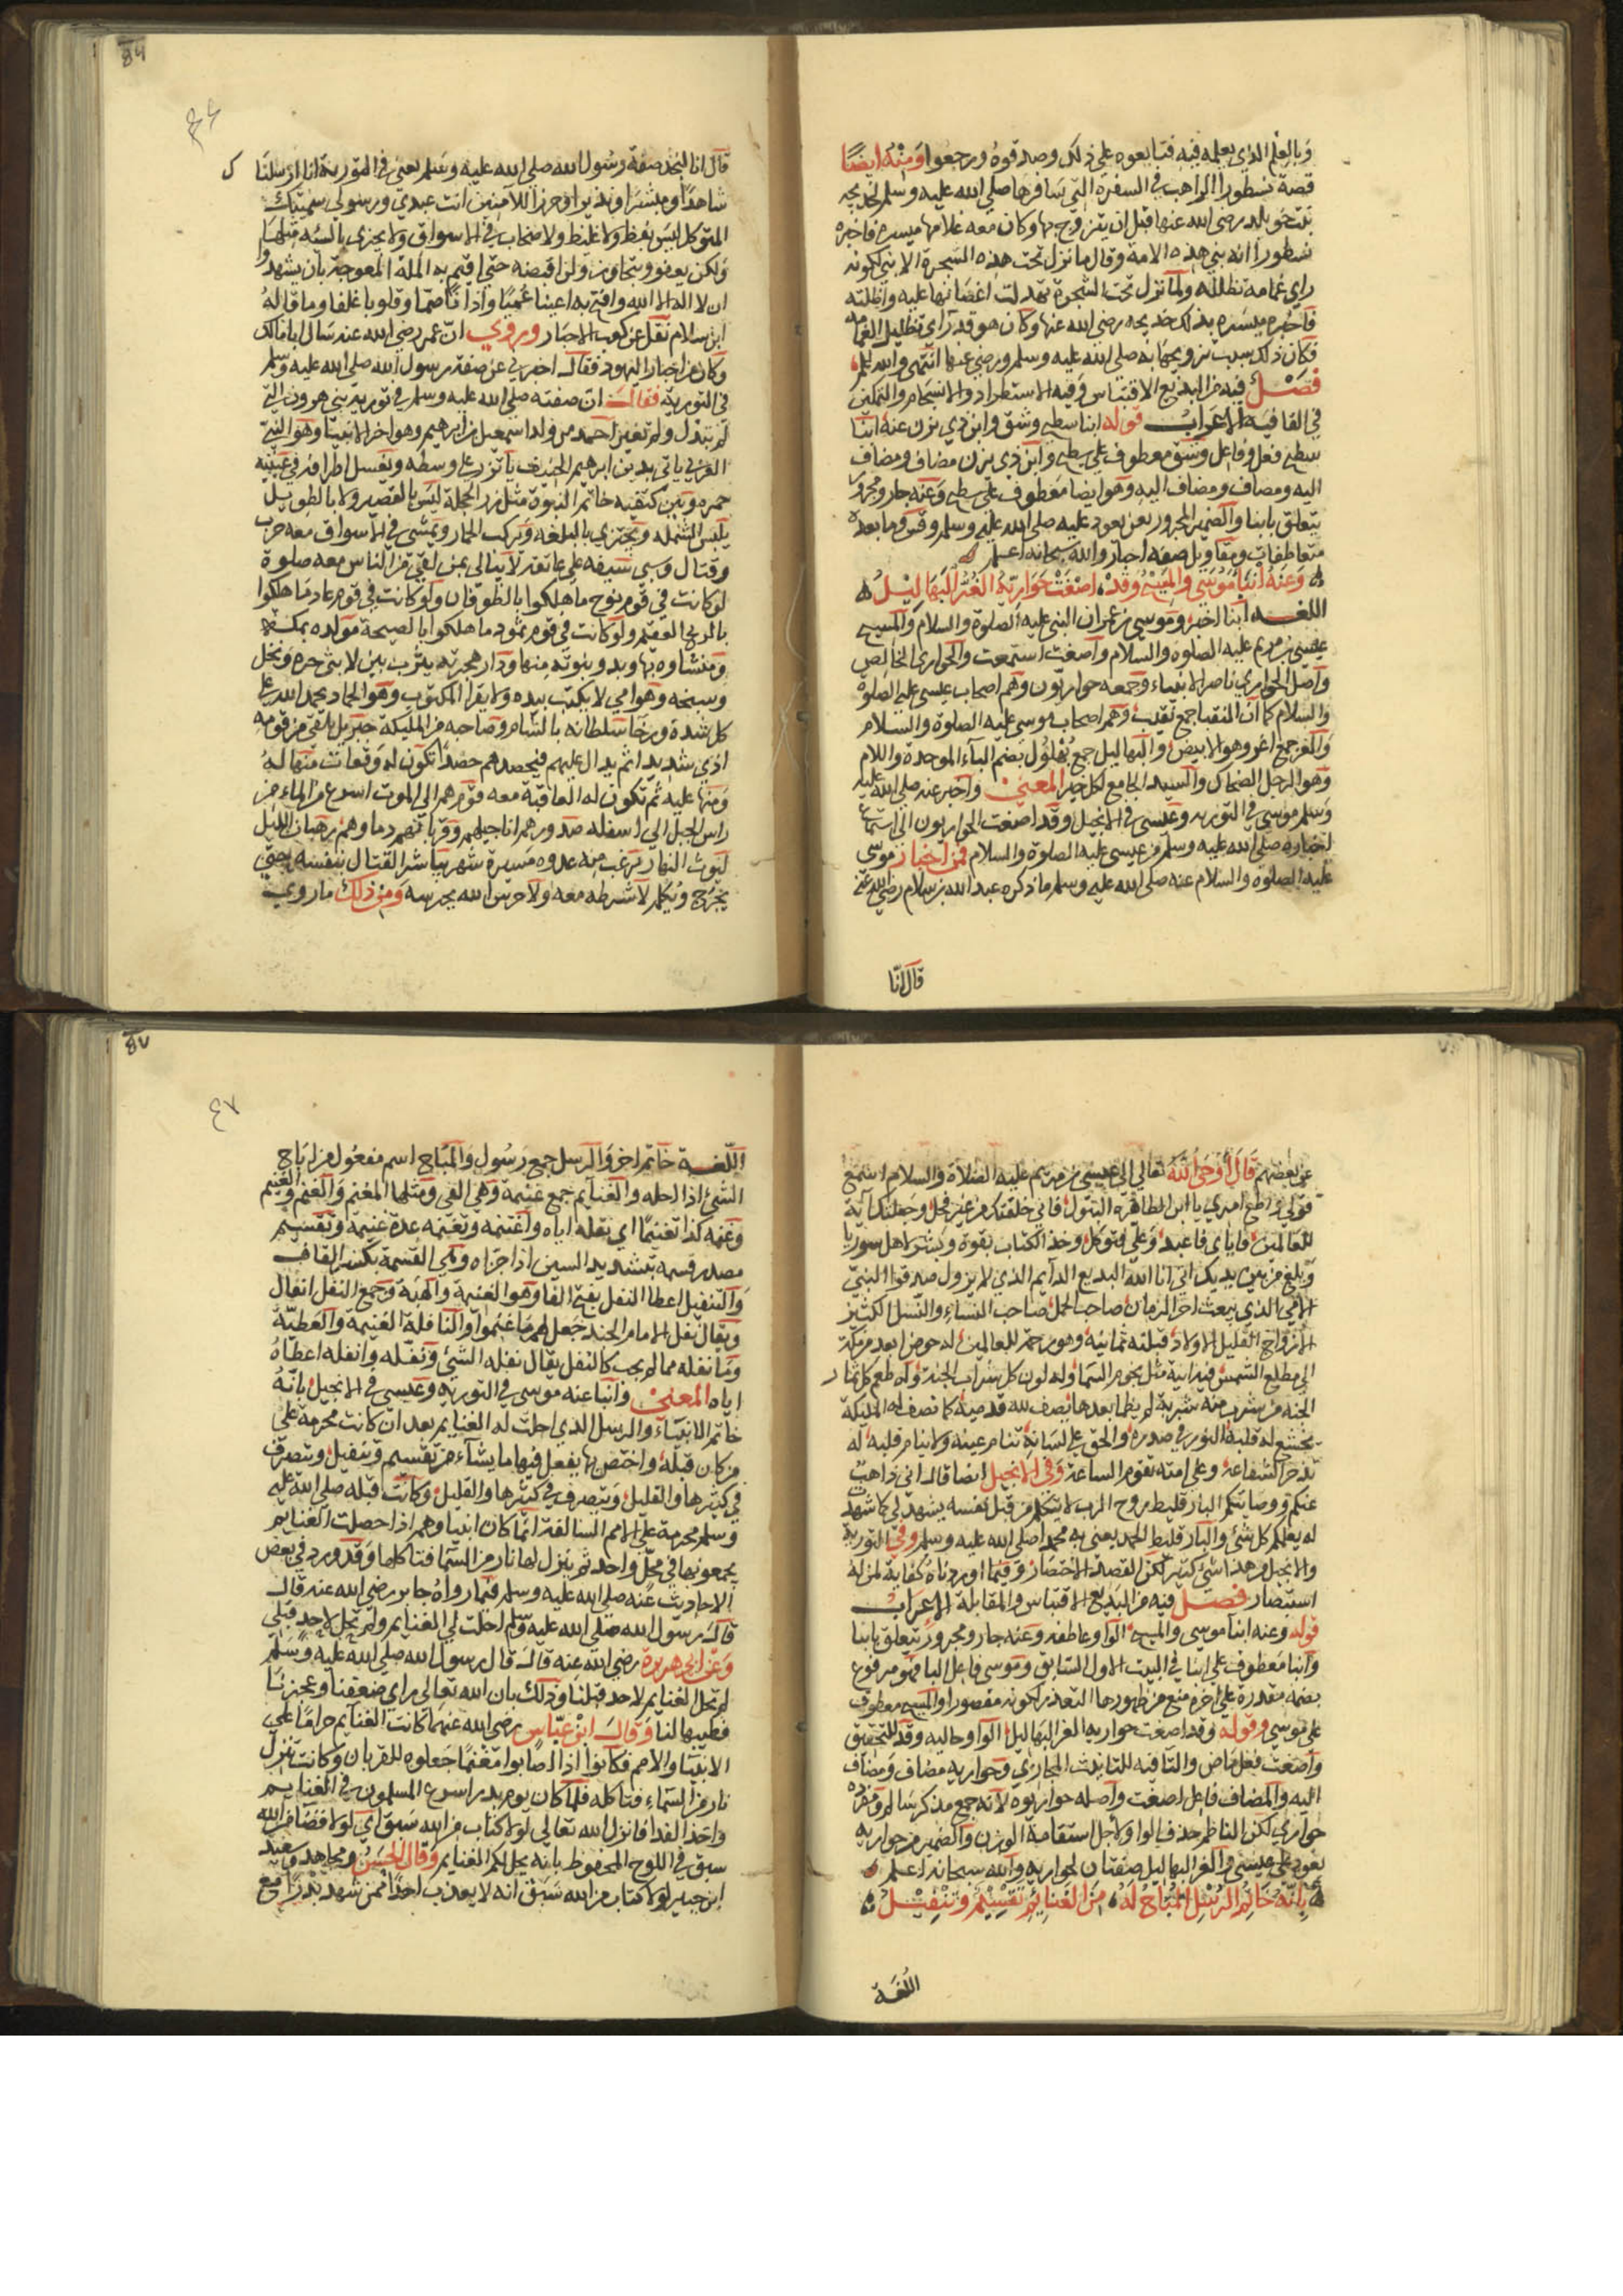 وبالعلم الذي يعلمه فيه فتابعوه على ذلك وصدقوه ورجعوا ومنه ايضًا
قصة نسطورا الراهب في السفرة التي سافرها صلى الله عليه وسلم لخديجه
بنت خويلد رضي الله عنها قبل ان يتزوج بها وكان معه غلامها ميسره فاخبره
نسطورا انه نبي هذه الامة وقال ما نزل تحت هذه الشجرة الا نبي لكونه
راي غمامه تظلله ولما نزل تحت الشجرة تهدلت اغصانها عليه واظلته
فاخبره ميسره بذلك خديجه رضي الله عنها وكان هو قد راي تظليل الغمامه
فكان ذلك سبب تزويجها به صلى الله عليه وسلم ورضي عنها انتهى والله اعلم
فصل فيه من البديع الاقتباس وفيه الاستطراد والانسجام والتمكين
في القافية الاعراب قوله انبا سطيح وشق وابن ذي يزن عنه انبا
سطيح فعل وفاعل وشق معطوف على سطيح وابن ذي يزن مضاف ومضاف
اليه ومضاف ومضاف اليه وهو ايضا معطوف على سطيح وعنه جار ومجرور
يتعلق بانبا والضمير المجرور بعن يعود عليه صلى الله عليه وسلم وقس وما بعده
متعاطفات وبقاويل صفه احبار والله سبحانه اعلم
وعنه انبا موسى والمسيح وقد اصغت حواريه الغر البهاليل
اللغه انبا اخبر وموسى بن عمران النبي عليه الصلوة والسلام والمسيح
عيسى بن مريم عليه الصلوه والسلام واصغت استمعت والحواري الخالص
واصل الحواري ناصر الانبياء وجمعه حواريون وهم اصحاب عيسى عليه الصلوة
والسلام كما ان النقبا جمع نقيب وهم اصحاب موسى عليه الصلوة والسلام
والغر جمع اغر وهو الابيض والبهاليل جمع بهلول بضم الباء الموحدة واللام
وهو الرجل الضحاك والسيد الجامع لكل خير المعنى واخبر عنه صلى الله عليه
وسلم موسى في التوريه وعيسى في الانجيل وقد اصغت الحواريون الى استماع
اخباره صلى الله عليه وسلم من عيسى عليه الصلوة والسلام فمن اخبار موسى
عليه الصلوه والسلام عنه صلى الله عليه وسلم ما ذكره عبد الله بن سلام رضي الله عنه
قال انا
84
٤٦
قال انا لنجد صفة رسول الله صلى الله عليه وسلم يعني في التورية انا ارسلناك
شاهدًا ومبشرا ونذيرا وحرزا للامنين انت عبدي ورسولي سميتك
المتوكل ليس بفظ ولا غليظ ولا صخاب في الاسواق ولا يجزي بالسيئه مثلها
ولكن يعفو ويتجاوز ولن اقبضه حتى اقيم به الملة المعوجة بان يشهدوا
ان لا اله الا الله وافتح به اعينا عميًا واذانا صمّا وقلوبا غلفا وما قاله
ابن سلام نقل عن كعب الاحبار وروي ان عمر رضي الله عنه سال ابا مالك
وكان من احبار اليهود فقال اخبرني عن صفة رسول الله صلى الله عليه وسلم
في التورية فقال ان صفته صلى الله عليه وسلم في تورية بني هرون التي
لم تبدل ولم تغير احمد من ولد اسمعيل بن ابرهيم وهو اخر الانبيا وهو النبي
العربي ياتي بدين ابرهيم الحنيف ياتزر على وسطه ويغسل اطرافه في عينيه
حمره وبين كتفيه خاتم النبوة مثل زر الحجلة ليس بالقصير ولا بالطويل
يلبس الشمله ويجتزي بالبلغه ويركب الحمار ويمشي في الاسواق معه حرب
وقتال وسبي سيفه على عاتقه لا يبالي من لقي من الناس معه صلوة
لو كانت في قوم نوح ما هلكوا بالطوفان ولو كانت في قوم عاد ما هلكوا
بالريح العقيم ولو كانت في قوم ثمود ما هلكوا بالصيحة مولده بمكة
ومنشاوه بها وبدو نبوته منها ودار هجرته يثرب بين لابتي حره ونخل
وسبخه وهو امي لا يكتب بيده ولا يقرا المكتوب وهو الحماد يحمد الله على
كل شدة ورخا سلطانه بالشام وصاحبه من المليكة جبريل يلقى من قومه
اذي شديدا ثم يدال عليهم فيحصدهم حصدًا تكون له وقعات منها له
ومنها عليه ثم تكون له العاقبة معه قوم هم الى الموت اسرع من الماء من
راس الجبل الى اسفله صدورهم اناجيلهم وقربانهم دماوهم رهبان الليل
ليوث النهار يرعب منه عدوه مسيرة شهر يباشر القتال بنفسه حتى
يخرج ويكلم لا شرطه معه ولا حرس الله يحرسه ومن ذلك ما روي
عن بعضهم قال اوحى الله تعالى الى عيسى بن مريم عليه الصلاة والسلام اسمع
قولي واطع امري يا ابن الطاهرة البتول فاني خلقتك من غير فحل وجعلتك آية
للعالمين فاياي فاعبد وعلي فتوكل وخذ الكتاب بقوة وبشر اهل سوريا
وبلغ من بين يديك اني انا الله البديع الدايم الذي لا يزول صدقوا النبي
الامي الذي يبعث اخر الزمان صاحب الجمل صاحب النساء والنسل الكثير
الازواج القليل الاولاد قبلته يمانية وهو رحمة للعالمين له حوض ابعد من مكة
الى مطلع الشمس فيه انية مثل نجوم السما وله لون كل شراب الجنة وله طعم كل ثمار
الجنة من شرب منه شربة لم يظما بعدها يصف لله قدميه كما تصف الملايكة
يخشع له قلبه النور في صدره والحق على لسانه تنام عينه ولا ينام قلبه له
تدخر الشفاعة وعلى امته تقوم الساعة وفي الانجيل ايضا قال اني ذاهب
عنكم وصاتيكم البارقليط روح الرب لا يتكلم من قبل نفسه يشهد لي كما شهدت
له يعلمكم كل شئ والبارقليط احمد يعني به محمدا صلى الله عليه وسلم وفي التورية
والانجيل من هذا شئ كثير لكن القصد الاختصار وفيما اوردناه كفاية لمن له
استبصار فصل فيه من البديع الاقتباس والمقابلة الاعراب
قوله وعنه انبا موسى والمسيح الواو عاطفه وعنه جار ومجرور يتعلق بانبا
وانبا معطوف على انبا في البيت الاول السابق وموسى فاعل انبا فهو مرفوع
بضمه مقدرة على اخره منع من ظهورها التعذر لكونه مقصورا والمسيح معطوف
على موسى وقوله وقد اصغت حواريه الغر البهاليل الواو حاليه وقد للتحقيق
واصغت فعل ماض والتا فيه للتانيث المجازي وحواريه مضاف ومضاف
اليه والمضاف فاعل اصغت واصله حواريوه لانه جمع مذكر سالم ومفرده
حواري لكن الناظم حذف الواو لاجل استقامة الوزن والضمير من حواريه
يعود على عيسى والغر البهاليل صفتان لحواريه والله سبحانه اعلم
بانه خاتم الرسل المباح له من الغنايم تقسيم وتنفيل
اللغة
87
٤٧
اللغة خاتم اخر والرسل جمع رسول والمباح اسم مفعول من اباح
الشئ اذا احله والغنايم جمع غنيمة وهي الفي ومثلها المغنم والغنم والغنيم
وغنمه كذا تغنيمًا اي نفله اياه واغتنمه وتغنمه عده غنيمة وتقسيم
مصدر قسمه بتشديد السين اذا جزاه وهي القسمة بكسر القاف
والتنفيل اعطا النفل بفتح الفا وهو الغنيمة والهبة وجمع النفل انفال
ويقال نفل الامام الجند جعل لهم ما غنموا والنافلة الغنيمة والعطية
وما نفله مما لم يجب كالنفل يقال نفله الشئ ونفّله وانفله اعطاه
اياه المعنى وانبا عنه موسى في التوريه وعيسى في الانجيل بانه
خاتم الانبياء والرسل الذي احلت له الغنايم بعد ان كانت محرمة على
من كان قبله واختص بها يفعل فيها ما يشاء من تقسيم وتنفيل ويتصرف
في كثيرها والقليل ويتصرف في كثيرها والقليل وكانت قبله صلى الله عليه
وسلم محرمة على الامم السالفة انما كان انبياوهم اذا حصلت الغنايم
يجمعونها في محل واحد ثم ينزل لها نار من السما فتاكلها وقد ورد في بعض
الاحاديث عنه صلى الله عليه وسلم فيما رواه جابر رضي الله عنه قال
قال رسول الله صلى الله عليه وسلم احلت لي الغنايم ولم تحل لاحد قبلي
وعن ابي هريرة رضي الله عنه قال قال رسول الله صلى الله عليه وسلم
لم تحل الغنايم لاحد قبلنا وذلك بان الله تعالى راي ضعفنا وعجزنا
فطيبها لنا وقال ابن عباس رضي الله عنهما كانت الغنايم حرامًا على
الانبيا والامم فكانوا اذا اصابوا مغنمًا جعلوه للقربان وكانت تنزل
نار من السماء فتاكله فلما كان يوم بدر اسرع المسلمون في الغنايم
واخذ الفدا فانزل الله تعالى لولا كتاب من الله سبق اي لولا قضا من الله
سبق في اللوح المحفوظ بانه يحل لكم الغنايم وقال الحسن ومجاهد وسعيد
ابن جبير لولا كتاب من الله سبق انه لا يعذب احدًا ممن شهد بدرًا مع